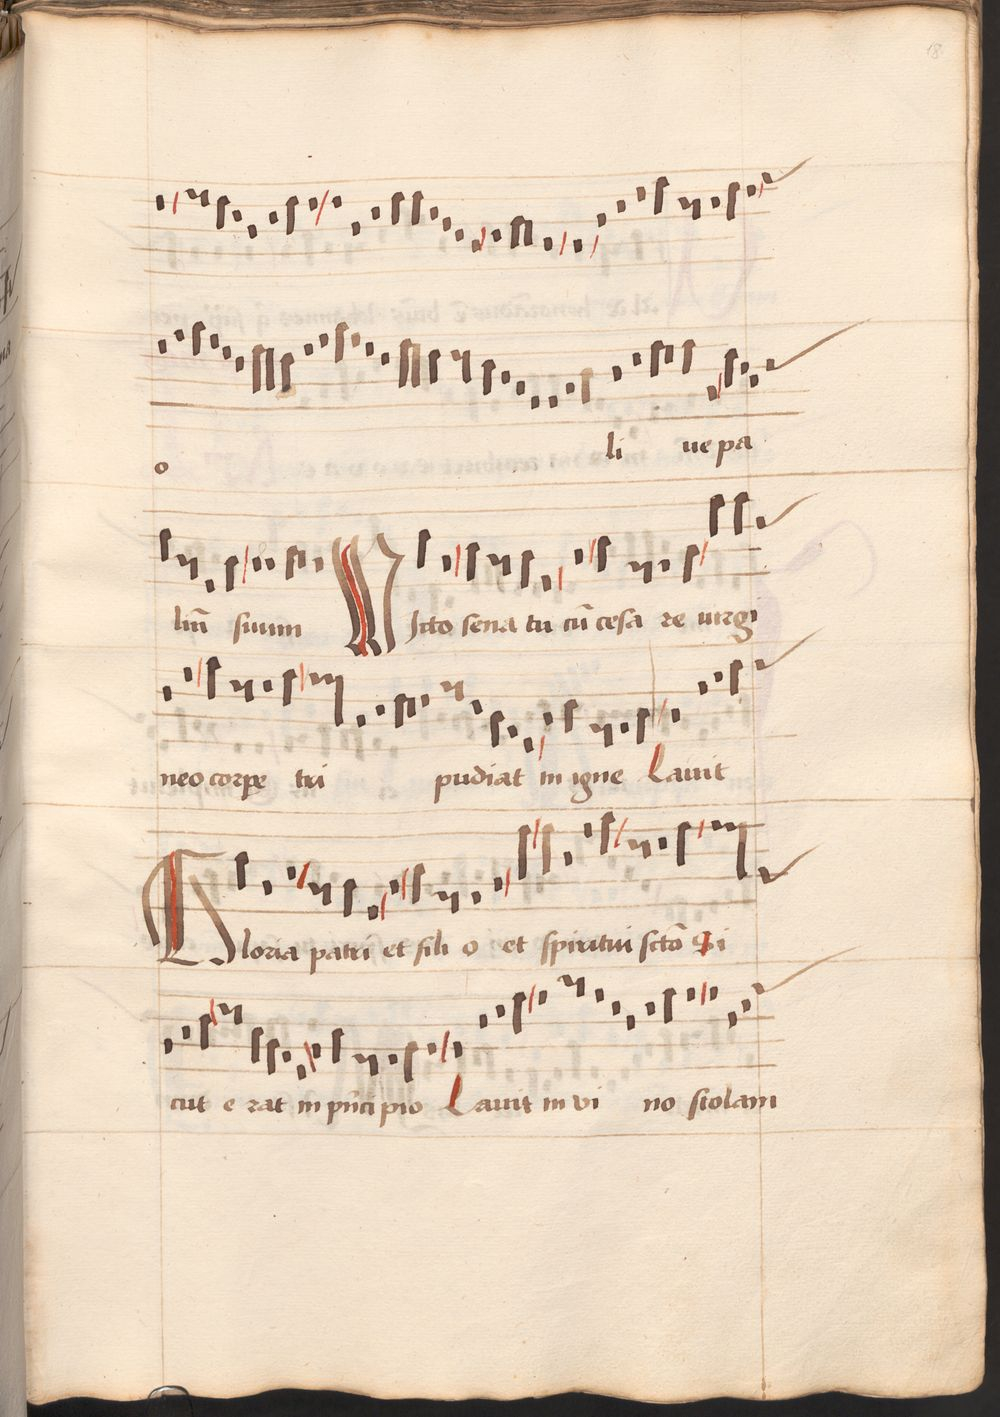 18
o li ue pa
liū suum Victo sena tu cū cesa re uirgi
neo corpe tri pudiat in igne Lauit
Gloria patri et fili o et spiritui sctō Si
cut e rat in pn̄ci pio Lauit in vi no stolam